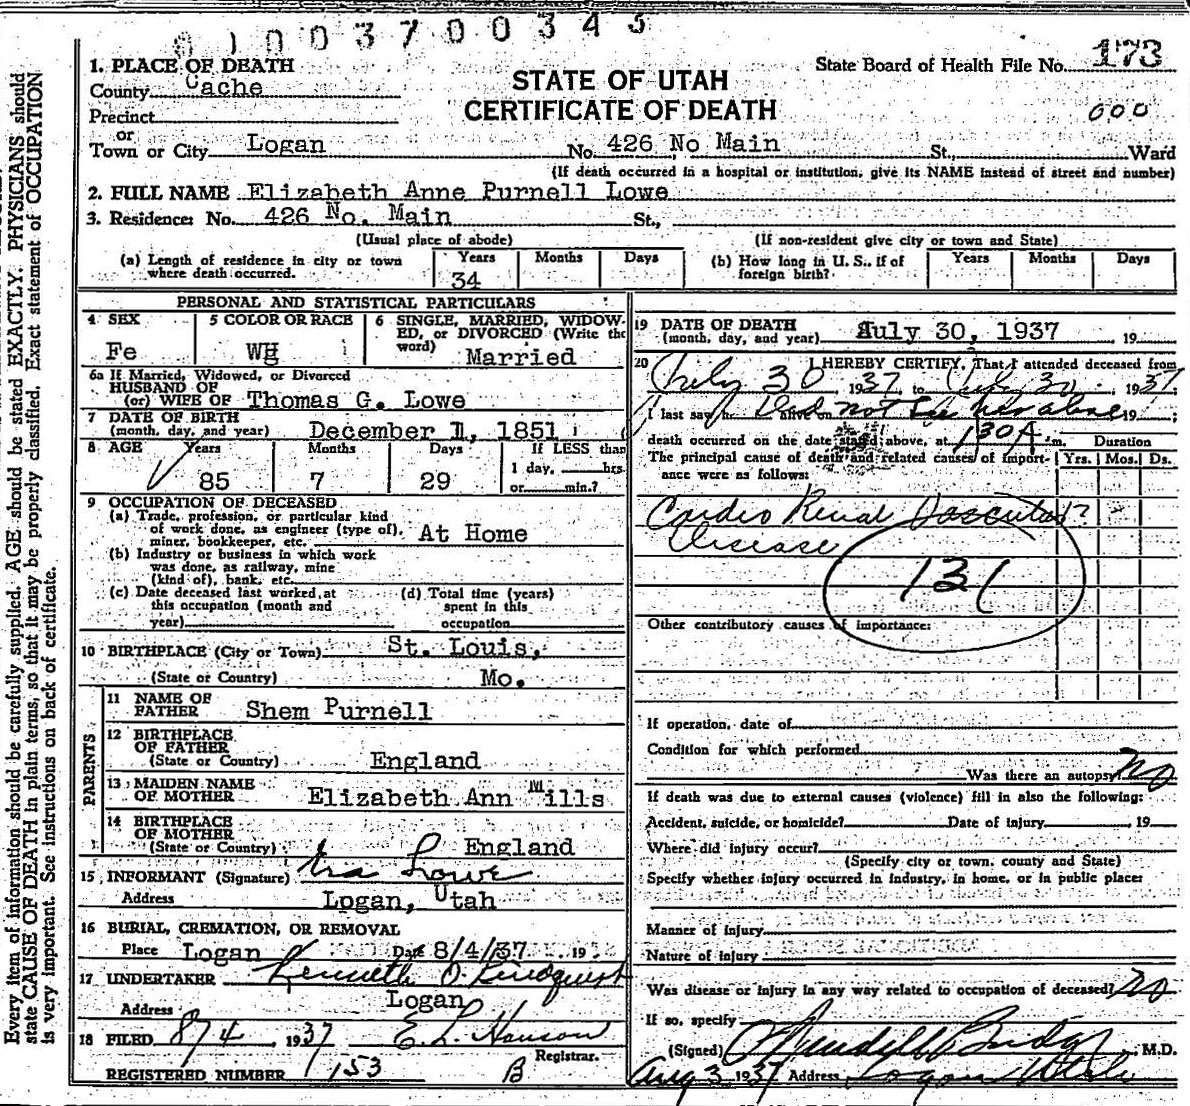 0100370 0343
Every item of information should be carefully supplied. AGE should be stated EXACTLY. PHYSICIANS should
state CAUSE OF DEATH in plain terms, so that it may be properly classified. Exact statement of OCCUPATION
is very important. See instructions on back of certificate.
1. PLACE OF DEATH
County Cache
Precinct
or
Town or City Logan
STATE OF UTAH
CERTIFICATE OF DEATH
State Board of Health File No. 173
000
No. 426 No Main St., Ward
(If death occurred in a hospital or institution, give its NAME instead of street and number)
2. FULL NAME Elizabeth Anne Purnell Lowe
3. Residence: No. 426 No. Main St.,
(Usual place of abode) (If non-resident give city or town and State)
(a) Length of residence in city or town where death occurred. Years 34 Months Days
(b) How long in U. S., if of foreign birth? Years Months Days
PERSONAL AND STATISTICAL PARTICULARS
4 SEX Fe
5 COLOR OR RACE WH
6 SINGLE, MARRIED, WIDOWED, or DIVORCED (Write the word) Married
6a If Married, Widowed, or Divorced
HUSBAND OF
(or) WIFE OF Thomas G. Lowe
7 DATE OF BIRTH
(month, day, and year) December 1, 1851
8 AGE Years 85 Months 7 Days 29
If LESS than
1 day, hrs.
or min.?
9 OCCUPATION OF DECEASED
(a) Trade, profession, or particular kind
of work done, as engineer (type of),
miner, bookkeeper, etc. At Home
(b) Industry or business in which work
was done, as railway, mine
(kind of), bank, etc.
(c) Date deceased last worked at
this occupation (month and
year)
(d) Total time (years)
spent in this
occupation
10 BIRTHPLACE (City or Town) St. Louis,
(State or Country) Mo.
PARENTS
11 NAME OF
FATHER Shem Purnell
12 BIRTHPLACE
OF FATHER
(State or Country) England
13 MAIDEN NAME
OF MOTHER Elizabeth Ann Mills
14 BIRTHPLACE
OF MOTHER
(State or Country) England
15 INFORMANT (Signature) Ira Lowe
Address Logan, Utah
16 BURIAL, CREMATION, OR REMOVAL
Place Logan Date 8/4/37 19
17 UNDERTAKER Kenneth O. Lindquist
Address Logan
18 FILED 8/4 1937 E. L. Hanson
Registrar.
REGISTERED NUMBER 153 B
19 DATE OF DEATH
(month, day, and year) July 30, 1937 19
20 I HEREBY CERTIFY, That I attended deceased from
July 30 1937 to July 30 1937
I last saw h alive on Did not see her alive 19 ;
death occurred on the date stated above, at 1 30 A m. Duration
The principal cause of death and related causes of importance were as follows: Yrs. Mos. Ds.
Cardio Renal Vascular ?
Disease
131
Other contributory causes of importance:
If operation, date of
Condition for which performed
Was there an autopsy No
If death was due to external causes (violence) fill in also the following:
Accident, suicide, or homicide? Date of injury , 19
Where did injury occur?
(Specify city or town, county and State)
Specify whether injury occurred in industry, in home, or in public place:
Manner of injury
Nature of injury
Was disease or injury in any way related to occupation of deceased? No
If so, specify
(Signed) , M.D.
Aug 3, 1937 Address Logan Utah